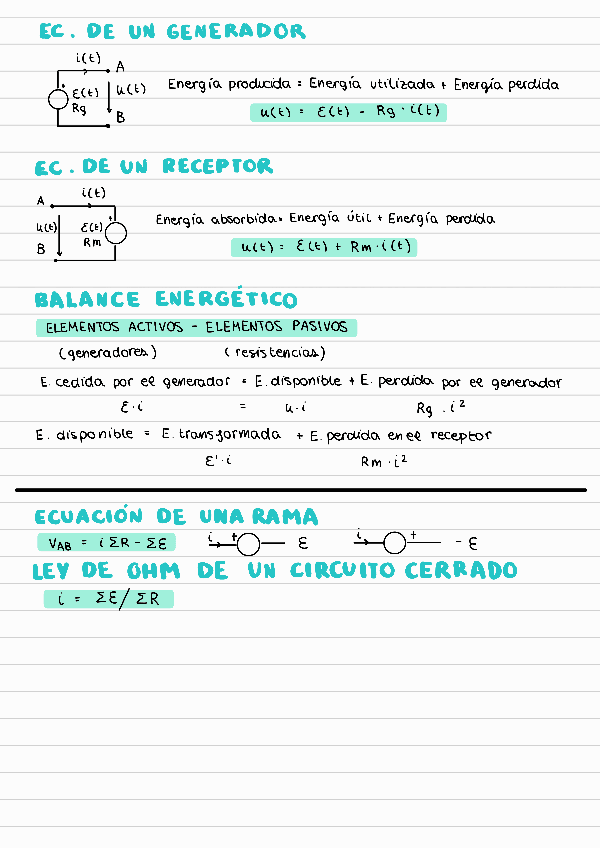 EC. DE UN GENERADOR
i(t)
A
+ ε(t) u(t)
Rg
B
Energía producida = Energía utilizada + Energía perdida
u(t) = ε(t) - Rg · i(t)
EC. DE UN RECEPTOR
i(t)
A
+
u(t) ε(t)
Rm
B
Energía absorbida = Energía útil + Energía perdida
u(t) = ε(t) + Rm · i(t)
BALANCE ENERGÉTICO
ELEMENTOS ACTIVOS - ELEMENTOS PASIVOS
(generadores) (resistencias)
E. cedida por el generador = E. disponible + E. perdida por el generador
ε · i = u · i Rg · i²
E. disponible = E. transformada + E. perdida en el receptor
ε' · i Rm · i²
ECUACIÓN DE UNA RAMA
VAB = i ΣR - Σε i + ε i + - ε
LEY DE OHM DE UN CIRCUITO CERRADO
i = Σε / ΣR